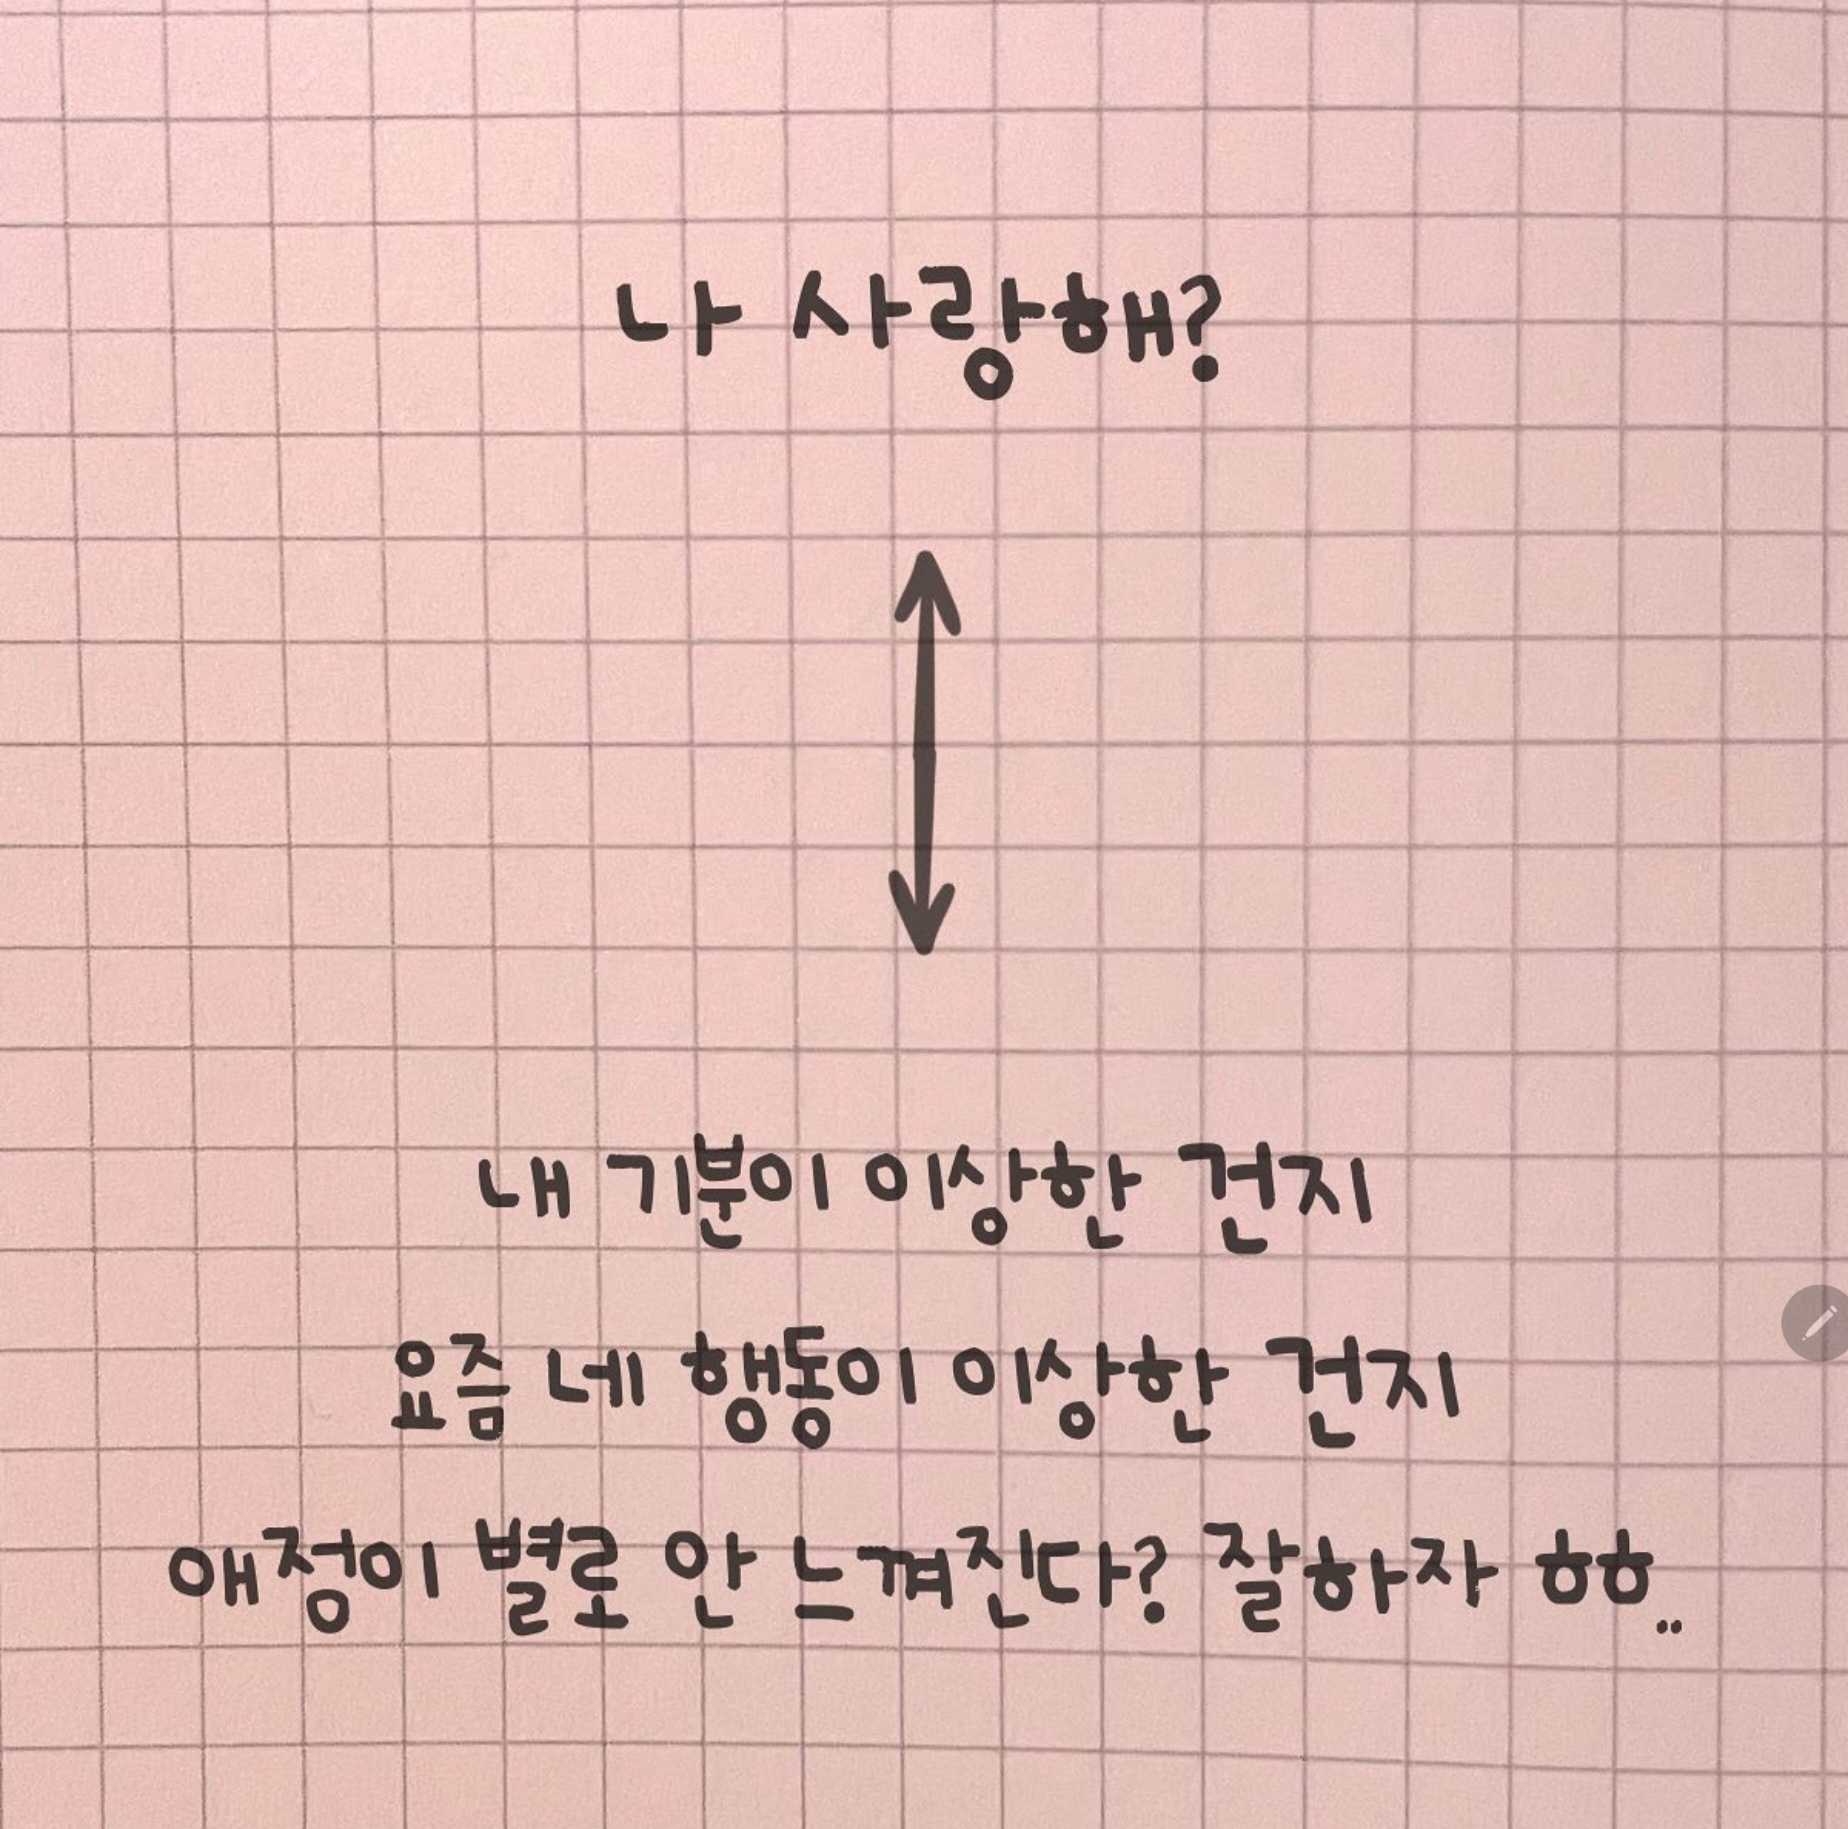 나 사랑해?
내 기분이 이상한 건지
요즘 네 행동이 이상한 건지
애정이 별로 안 느껴진다? 잘하자 ㅎㅎ..